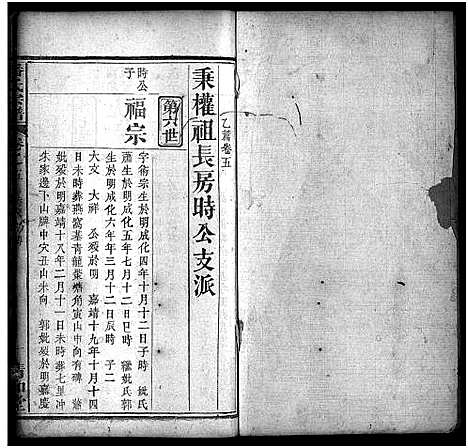 乙富卷五
秉權祖長房時公支派
第六世
時公子
福宗
字衛宗生於明成化四年十月十二日子時 妣氏
蕭生於明成化五年七月十二日巳時 繼妣氏郭
生於明成化六年三月十二日辰時 子二
大文 大祥 公歿於明 嘉靖十九年十月十四
日未時葬燕窩墓青龍葉塘角寅山申向有碑 蕭
妣歿於明嘉靖十八年二月十一日未時葬七里冲
朱家邊卜山牌中穴丑山未向 郭妣歿於明嘉慶